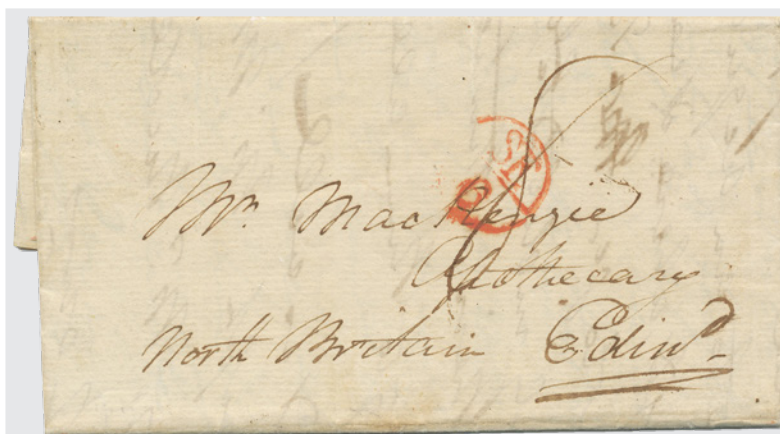 Mr. MacKenzie
Apothecary
North Britain Edinr.